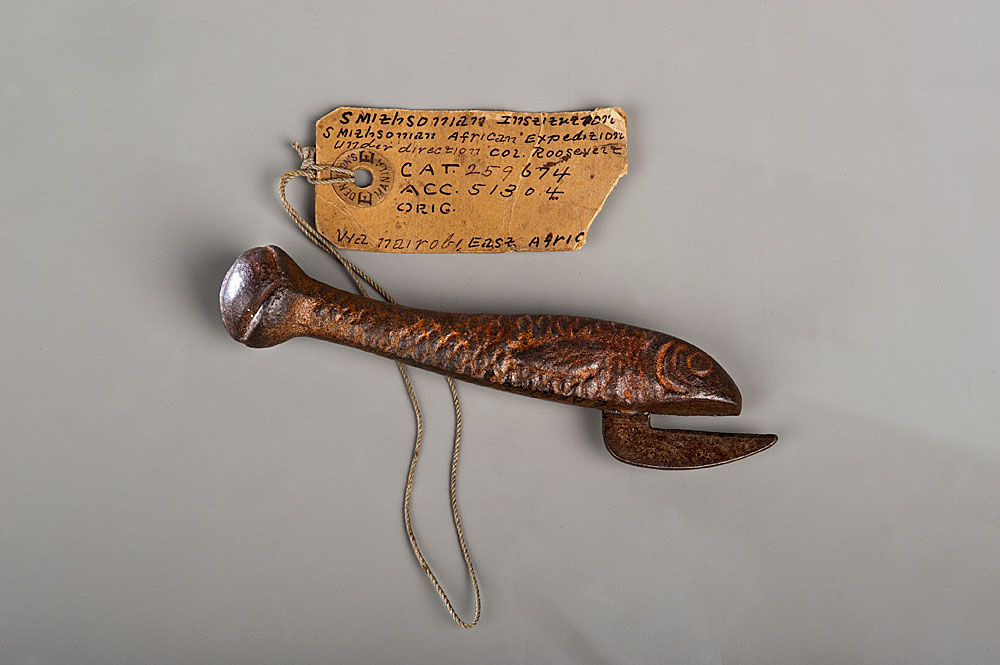 Smithsonian Institution
Smithsonian African Expedition
Under direction Col. Roosevelt
CAT. 259674
ACC. 51304
ORIG.
Via Nairobi, East Afric
DENNISON'S
MANILLA
E E